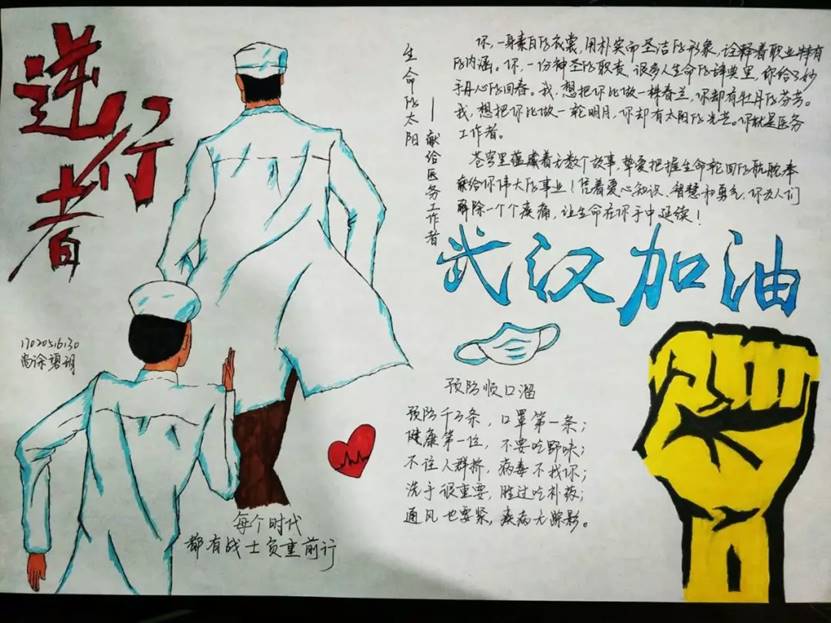 逆行者
生命的太阳
——献给医务工作者
你,一身素白的衣裳,用朴实而圣洁的形象,诠释着职业特有
的内涵。你,一份神圣的职责,很多人生命的辞典里,你给了妙
手丹心的回春。我,想把你比做一株春兰,你却有牡丹的芬芳。
我,想把你比做一轮明月,你却有太阳的光芒。你就是医务
工作者。
苍穹里蕴藏着无数个故事,挚爱把握生命轮回的航舵奉
献给你伟大的事业!凭着爱心知识、智慧和勇气,你为人们
解除一个个疾痛,让生命在你手中延续!
武汉加油
1702051630
预防顺口溜
预防千万条,口罩第一条;
健康第一位,不要吃野味;
不往人群挤,病毒不找你;
洗手很重要,胜过吃补药;
通风也要紧,疾病无踪影。
每个时代
都有战士负重前行